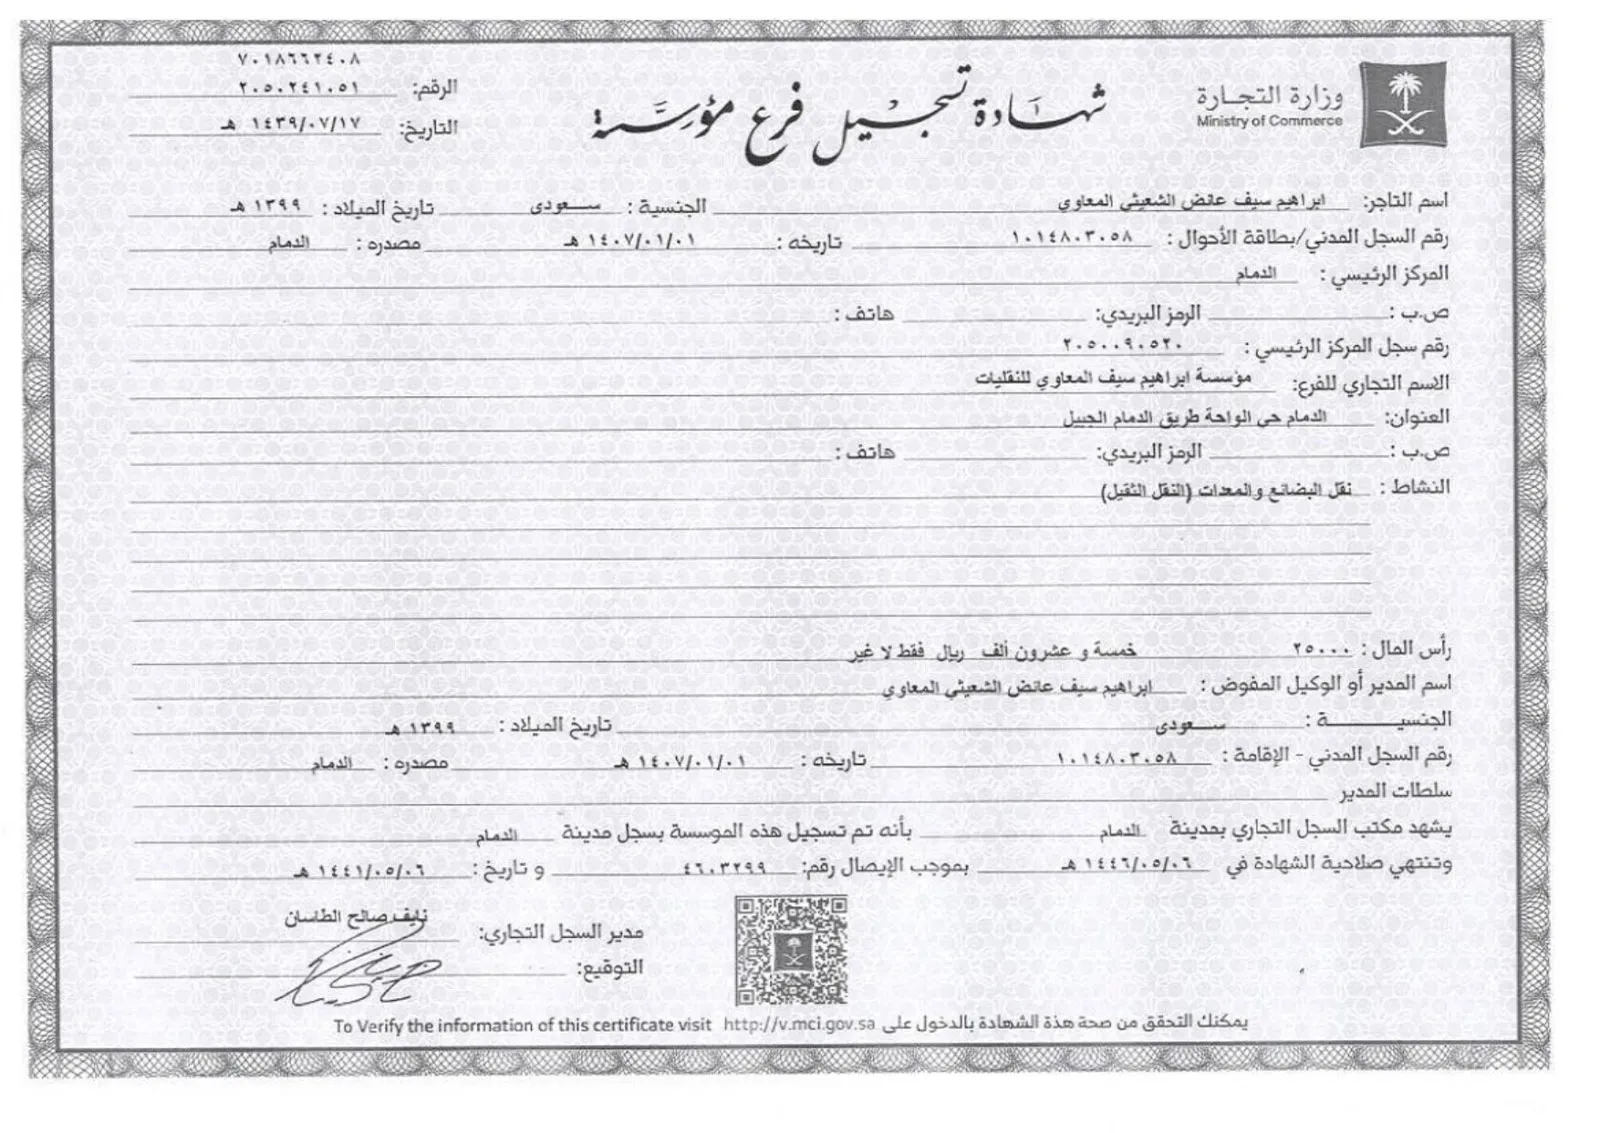 وزارة التجارة
Ministry of Commerce
شهادة تسجيل فرع مؤسسة
٧٠١٨٦٦٢٤٠٨
الرقم: ٢٠٥٠٢٤١٠٥١
التاريخ: ١٤٣٩/٠٧/١٧ هـ
اسم التاجر: ابراهيم سيف عائض الشعيثي المعاوي الجنسية : سعودى تاريخ الميلاد : ١٣٩٩ هـ
رقم السجل المدني/بطاقة الأحوال : ١٠١٤٨٠٣٠٥٨ تاريخه : ١٤٠٧/٠١/٠١ هـ مصدره : الدمام
المركز الرئيسي : الدمام
ص.ب : الرمز البريدي: هاتف :
رقم سجل المركز الرئيسي : ٢٠٥٠٠٩٠٥٢٠
الاسم التجاري للفرع: مؤسسة ابراهيم سيف المعاوي للنقليات
العنوان: الدمام حى الواحة طريق الدمام الجبيل
ص.ب : الرمز البريدي: هاتف :
النشاط : نقل البضائع والمعدات (النقل الثقيل)
رأس المال : ٢٥٠٠٠ خمسة و عشرون ألف ريال فقط لا غير
اسم المدير أو الوكيل المفوض : ابراهيم سيف عائض الشعيثي المعاوي
الجنسيـــة : سعودى تاريخ الميلاد : ١٣٩٩ هـ
رقم السجل المدني - الإقامة : ١٠١٤٨٠٣٠٥٨ تاريخه : ١٤٠٧/٠١/٠١ هـ مصدره : الدمام
سلطات المدير
يشهد مكتب السجل التجاري بمدينة الدمام بأنه تم تسجيل هذه الموسسة بسجل مدينة الدمام
وتنتهي صلاحية الشهادة في ١٤٤٦/٠٥/٠٦ هـ بموجب الإيصال رقم: ٤٦٠٣٢٩٩ و تاريخ : ١٤٤١/٠٥/٠٦ هـ
مدير السجل التجاري: نايف صالح الطاسان
التوقيع:
يمكنك التحقق من صحة هذة الشهادة بالدخول على http://v.mci.gov.sa To Verify the information of this certificate visit